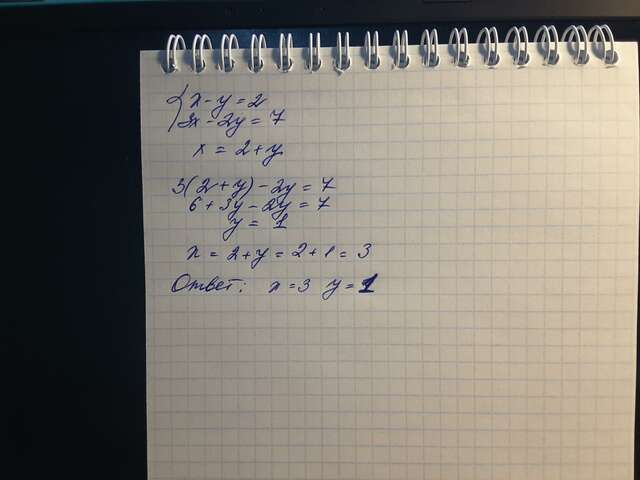 { x - y = 2
3x - 2y = 7
x = 2 + y
3(2 + y) - 2y = 7
6 + 3y - 2y = 7
y = 1
x = 2 + y = 2 + 1 = 3
Ответ: x = 3 y = 1